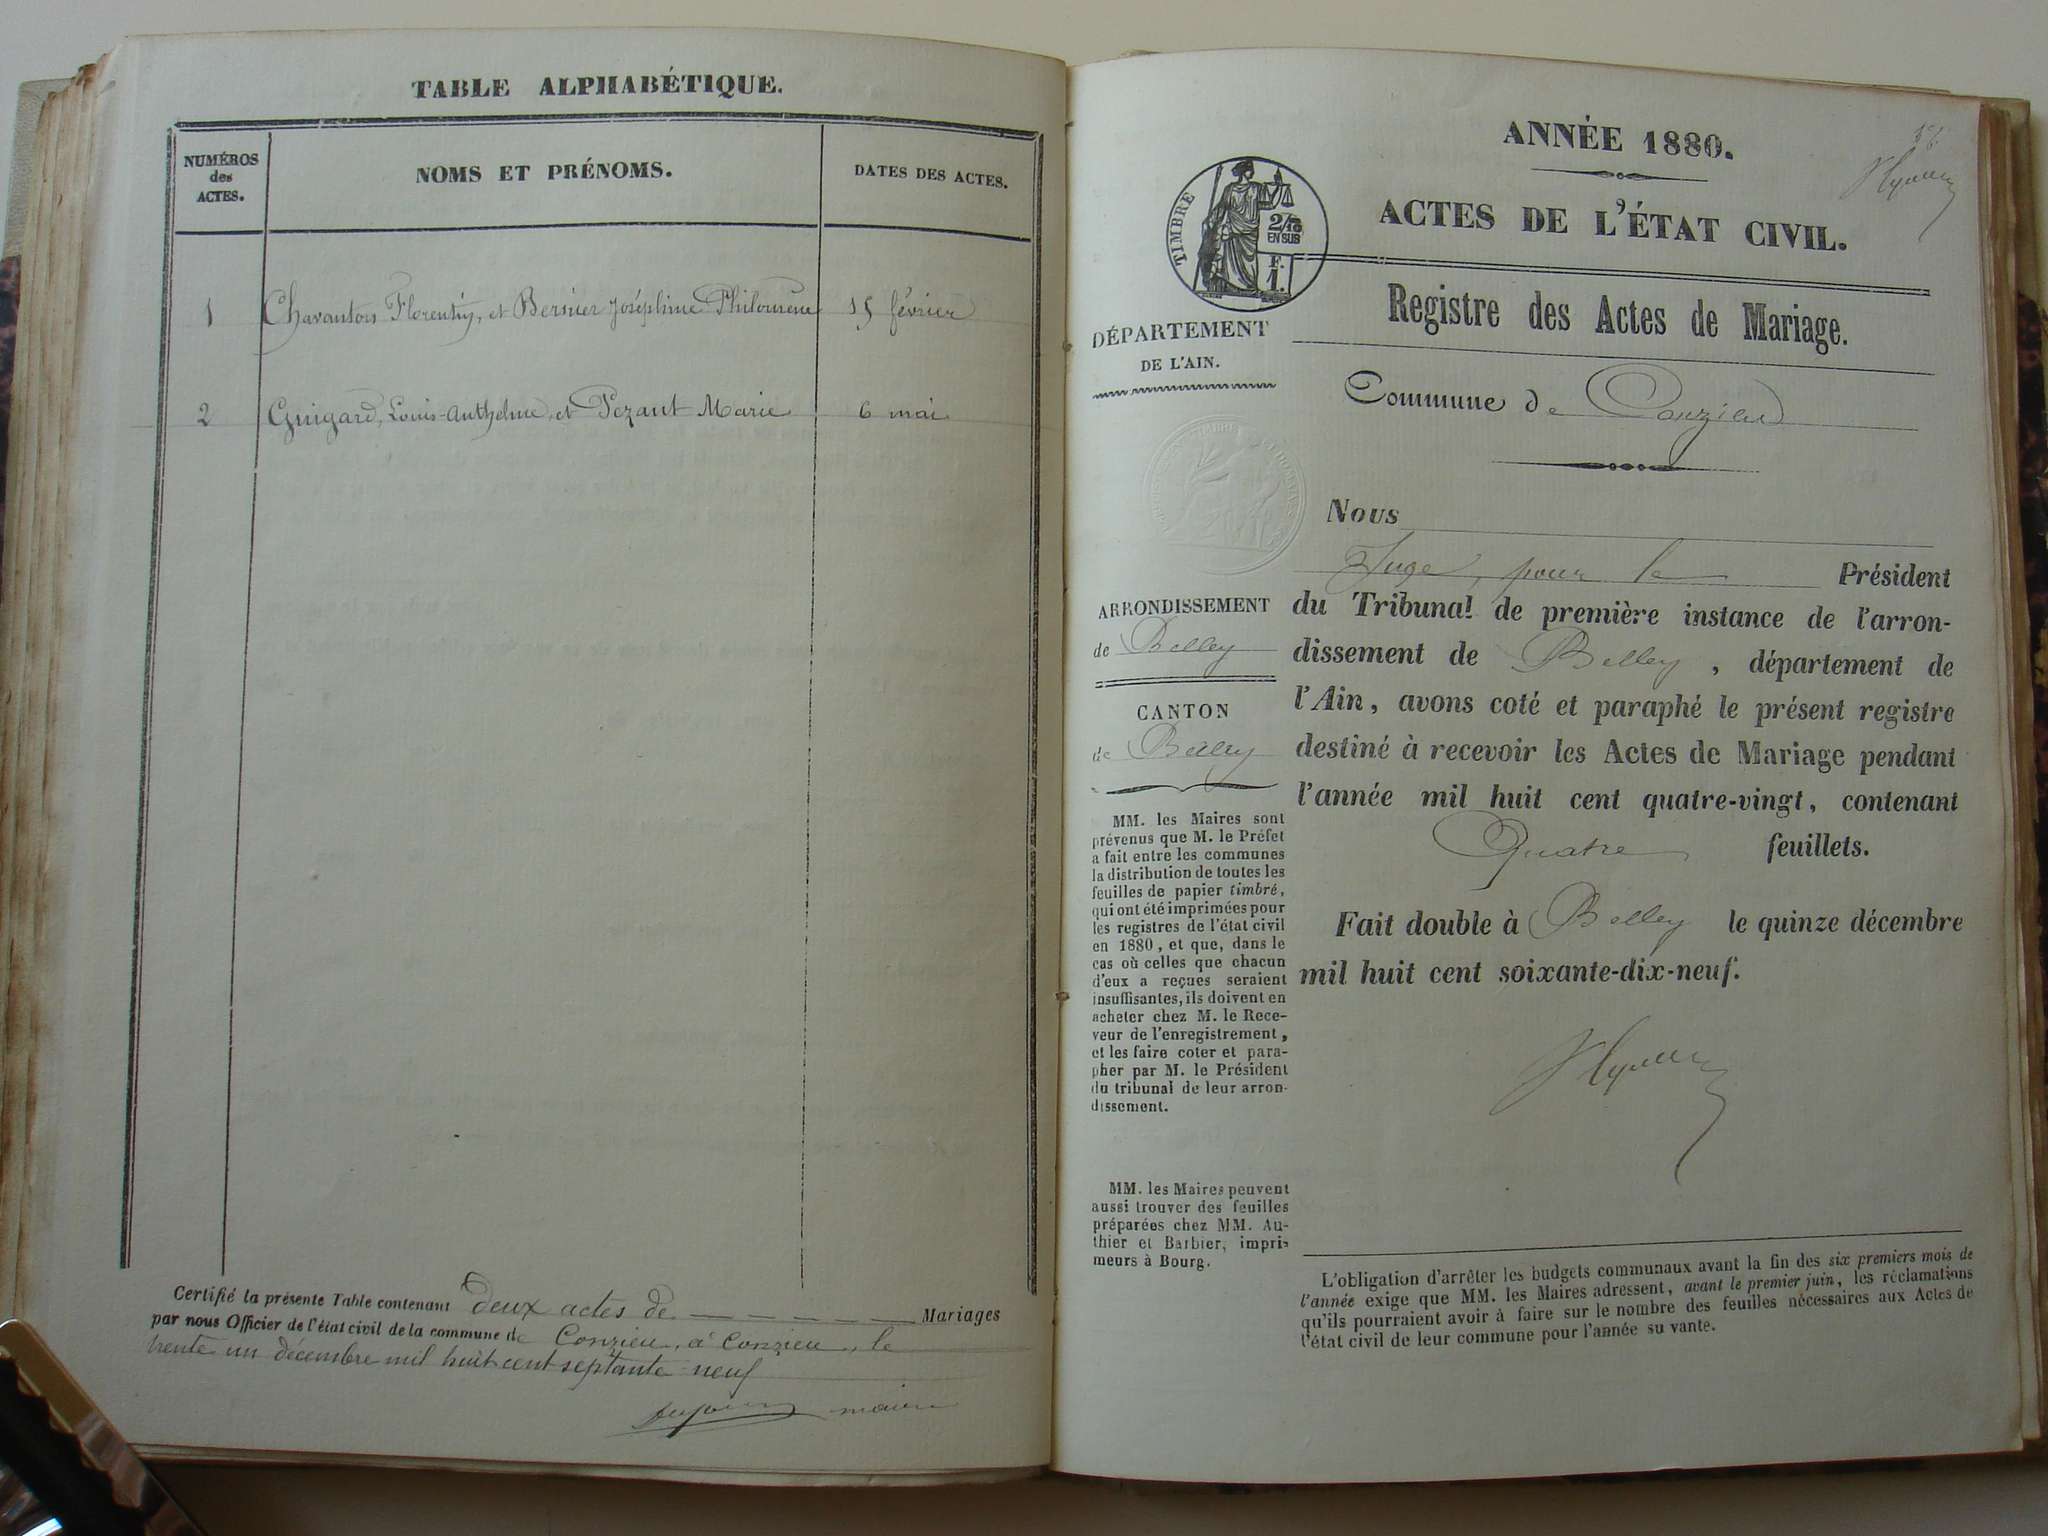 TABLE ALPHABÉTIQUE.
NUMÉROS
des
ACTES.
NOMS ET PRÉNOMS.
DATES DES ACTES.
1 Chavanton Florentin, et Bernier Joséphine Philomène 15 février
2 Guigard, Louis-Anthelme, et Pezant Marie 6 mai
Certifié la présente Table contenant deux actes de Mariages
par nous Officier de l'état civil de la commune de Conzieu, à Conzieu, le
trente un décembre mil huit cent septante neuf
maire
ANNÉE 1880.
ACTES DE L'ÉTAT CIVIL.
TIMBRE
2/10
EN SUS
F.
1.
Registre des Actes de Mariage.
DÉPARTEMENT
DE L'AIN.
Commune de Conzieu
Nous
Juge, pour le Président
du Tribunal de première instance de l'arron-
dissement de Belley, département de
l'Ain, avons coté et paraphé le présent registre
destiné à recevoir les Actes de Mariage pendant
l'année mil huit cent quatre-vingt, contenant
Quatre feuillets.
Fait double à Belley le quinze décembre
mil huit cent soixante-dix-neuf.
ARRONDISSEMENT
de Belley
CANTON
de Belley
MM. les Maires sont
prévenus que M. le Préfet
a fait entre les communes
la distribution de toutes les
feuilles de papier timbré,
qui ont été imprimées pour
les registres de l'état civil
en 1880, et que, dans le
cas où celles que chacun
d'eux a reçues seraient
insuffisantes, ils doivent en
acheter chez M. le Rece-
veur de l'enregistrement,
et les faire coter et para-
pher par M. le Président
du tribunal de leur arron-
dissement.
MM. les Maires peuvent
aussi trouver des feuilles
préparées chez MM. Au-
thier et Barbier, impri-
meurs à Bourg.
L'obligation d'arrêter les budgets communaux avant la fin des six premiers mois de
l'année exige que MM. les Maires adressent, avant le premier juin, les réclamations
qu'ils pourraient avoir à faire sur le nombre des feuilles nécessaires aux Actes de
l'état civil de leur commune pour l'année su vante.